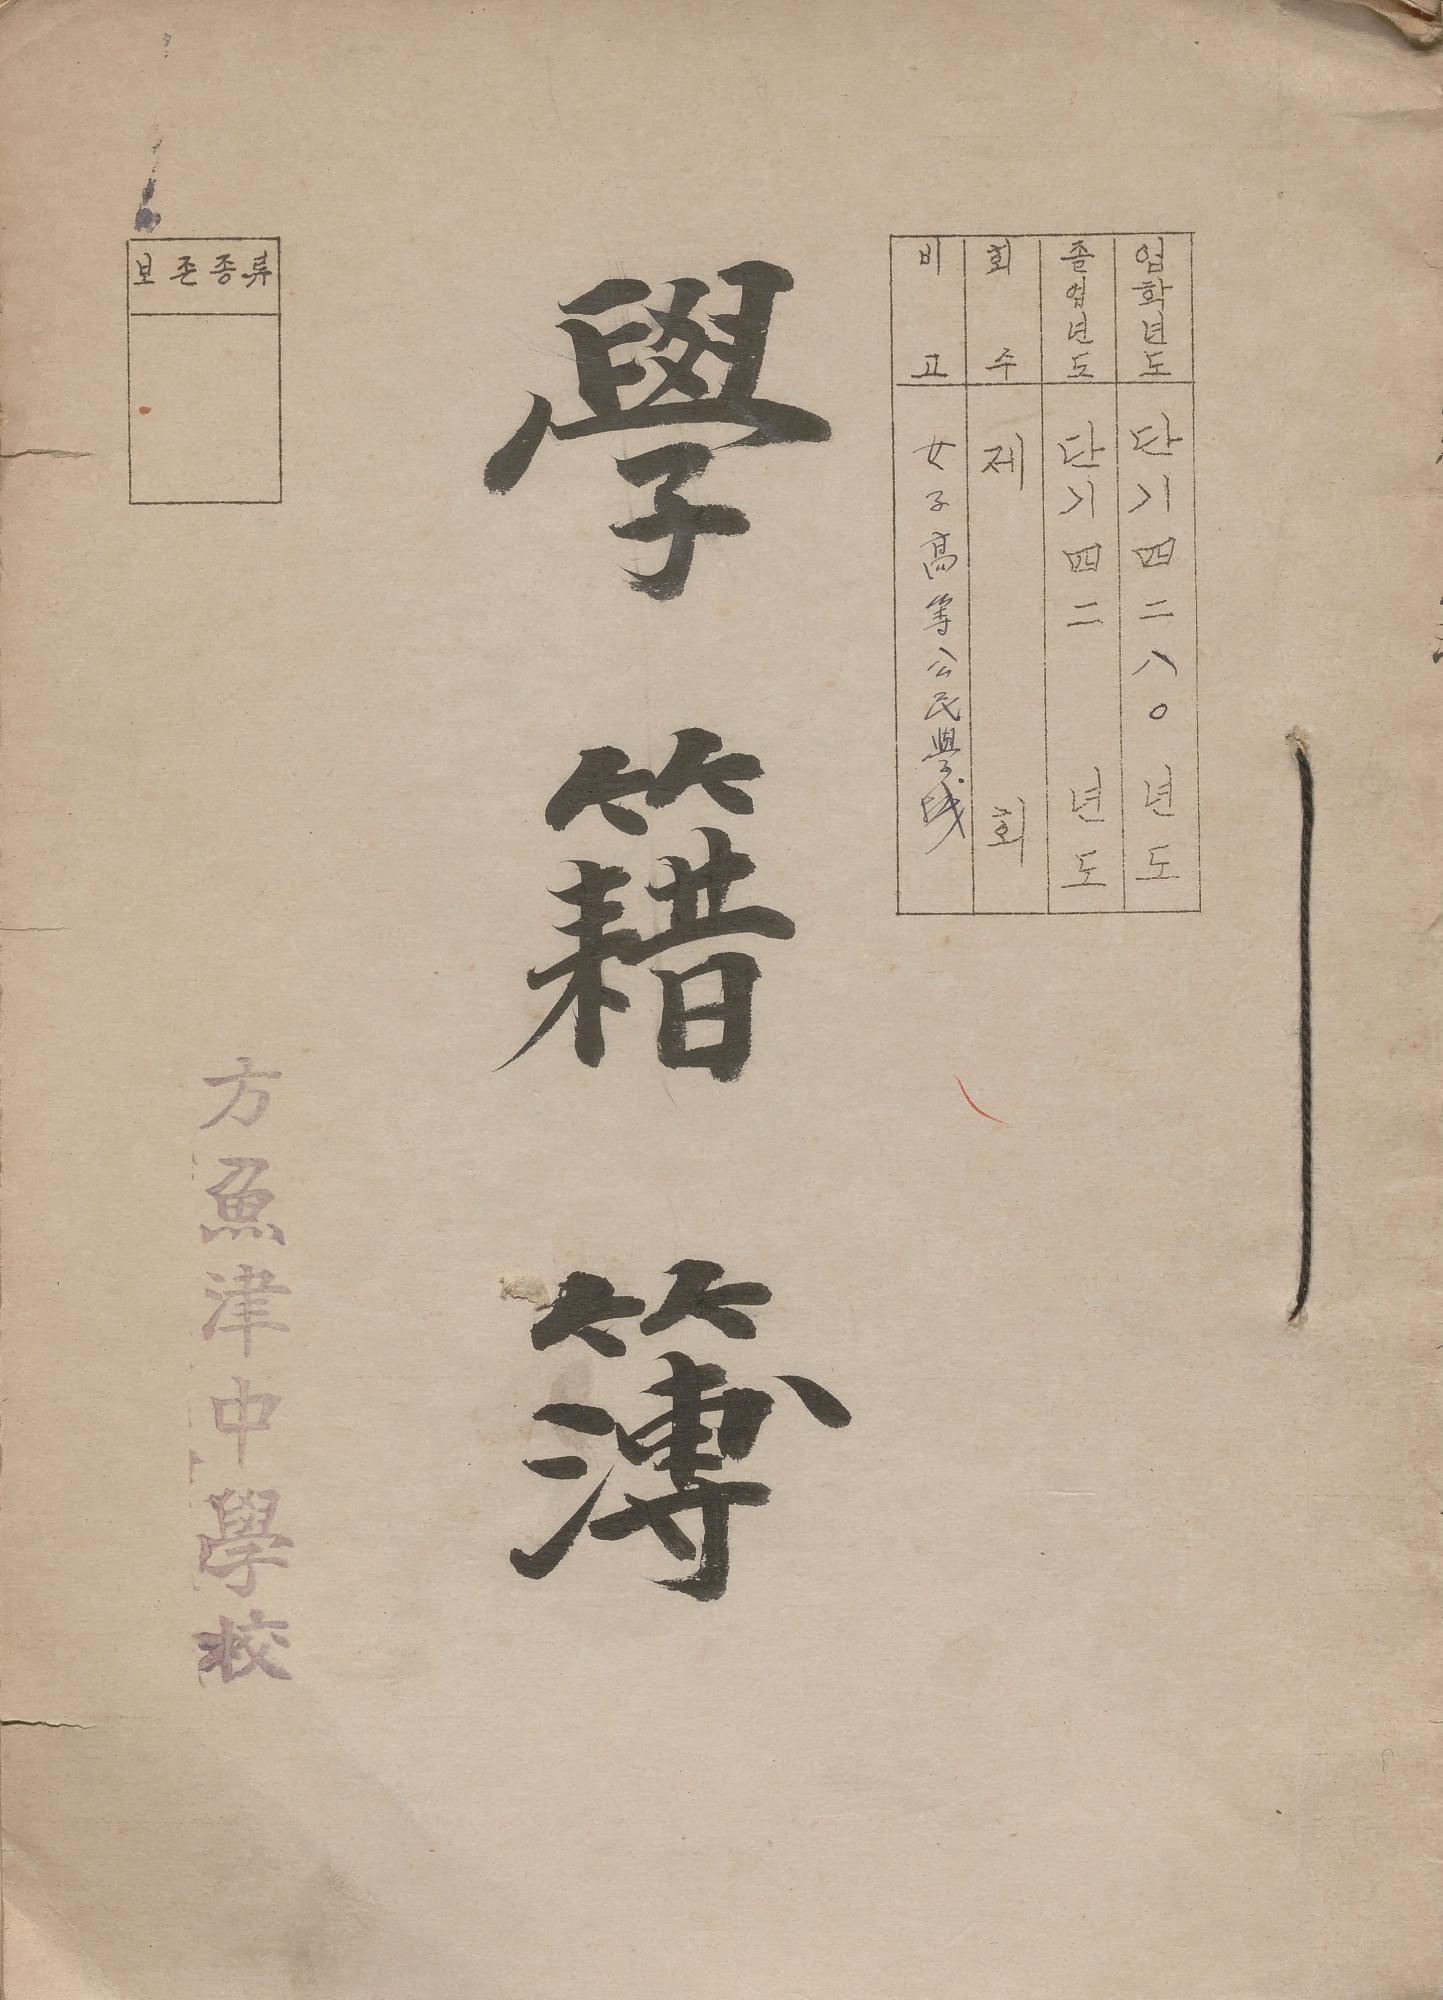 입학년도 단기四二八〇년도
졸업년도 단기四二 년도
회수 제 회
비고 女子高等公民學
學籍簿
보존종류
方魚津中學校